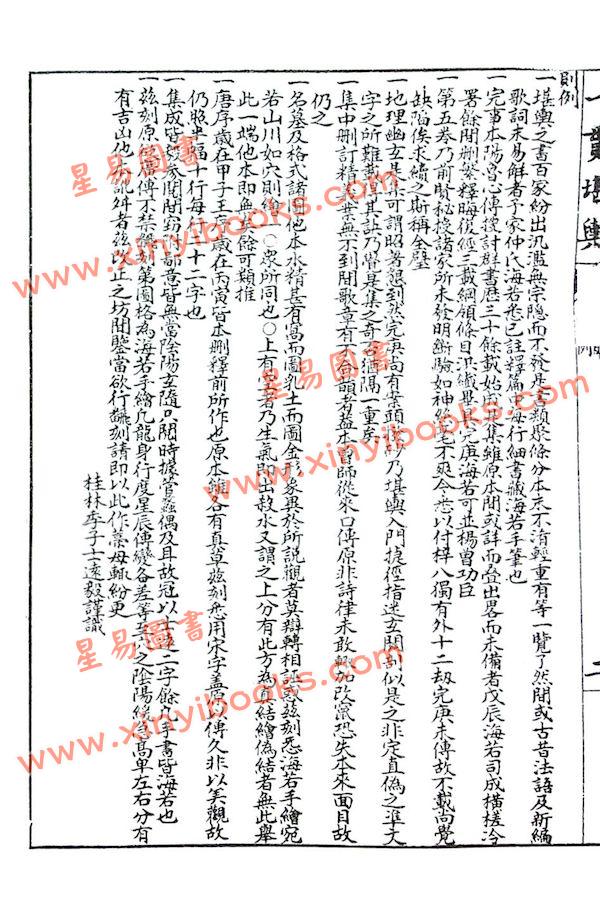 則例
一堪輿之書百家紛出汎濫無宗隱而不發是書類聚條分本末不清輕重有等一覽了然間或古昔法語及新編
歌詞未易解者予家仲氏海若悉已註釋篇中每行細書藏海若手筆也
一完事本陽昌心傳授討群書歷三十餘載始成集雖原本間或詳而疊出畧而未備者戊辰海若司成橫槎冷
署餘間刪繁釋晦復經三載綱領條目洪纖畢具完庚海若可並楊曾功臣
一第五卷乃前賢秘授諸家所未發明斷驗如神絲毛不爽今悉以付梓八獨有外十二刼完庚未傳故不載尚覺
缺陷俟求續之斯稱全璧
一地理幽玄是集可謂昭著懇到然完庚尚有案頭乃堪輿入門捷徑指迷玄關剖似是之非定直偽之準文
字之所難載宜其訣乃與是集之奇猶隔一重
一集中刪訂精文無不到間歌章有不合韻者蓋本曾師從來口傳原非詩律未敢輒加改竄恐失本來面目故
仍之
一名墓及格式諸圖他本水精甚有窩而圖乳土而圖金形象異於所說觀者莫辯轉相訛惑茲刻悉海若手繪宛
若山川如穴則繪一〇衆所同也〇上有者乃生氣即出殺水又謂之上分有此方為真結繪偽結者無此舉
此一端他本即無其餘可類推
一唐序歲在甲子王序歲在丙寅皆本刪釋前所作也原本雖各有真草茲刻悉用宋字蓋以傳久非以美觀故
仍照半幅十行每行二十二字也
一集成皆毅家間閒窃皆無當陰陽玄隨只閒時據管蠡偶及耳故冠以士遠二字餘凡手書皆海若也
一茲刻原廣傳不禁翻第圖格為海若手繪凡龍身行度星辰傳變各差等之陰陽緩急高卑左右分有
有吉凶他訛舛者茲改正之坊間鑒當欲行翻刻請即以此作藁母輒紛更
桂林李子士遠毅謹識
一貫堪輿
則例
二
星易圖書
www.xinyibooks.com
星易圖書
www.xinyibooks.com
星易圖書
www.xinyibooks.com